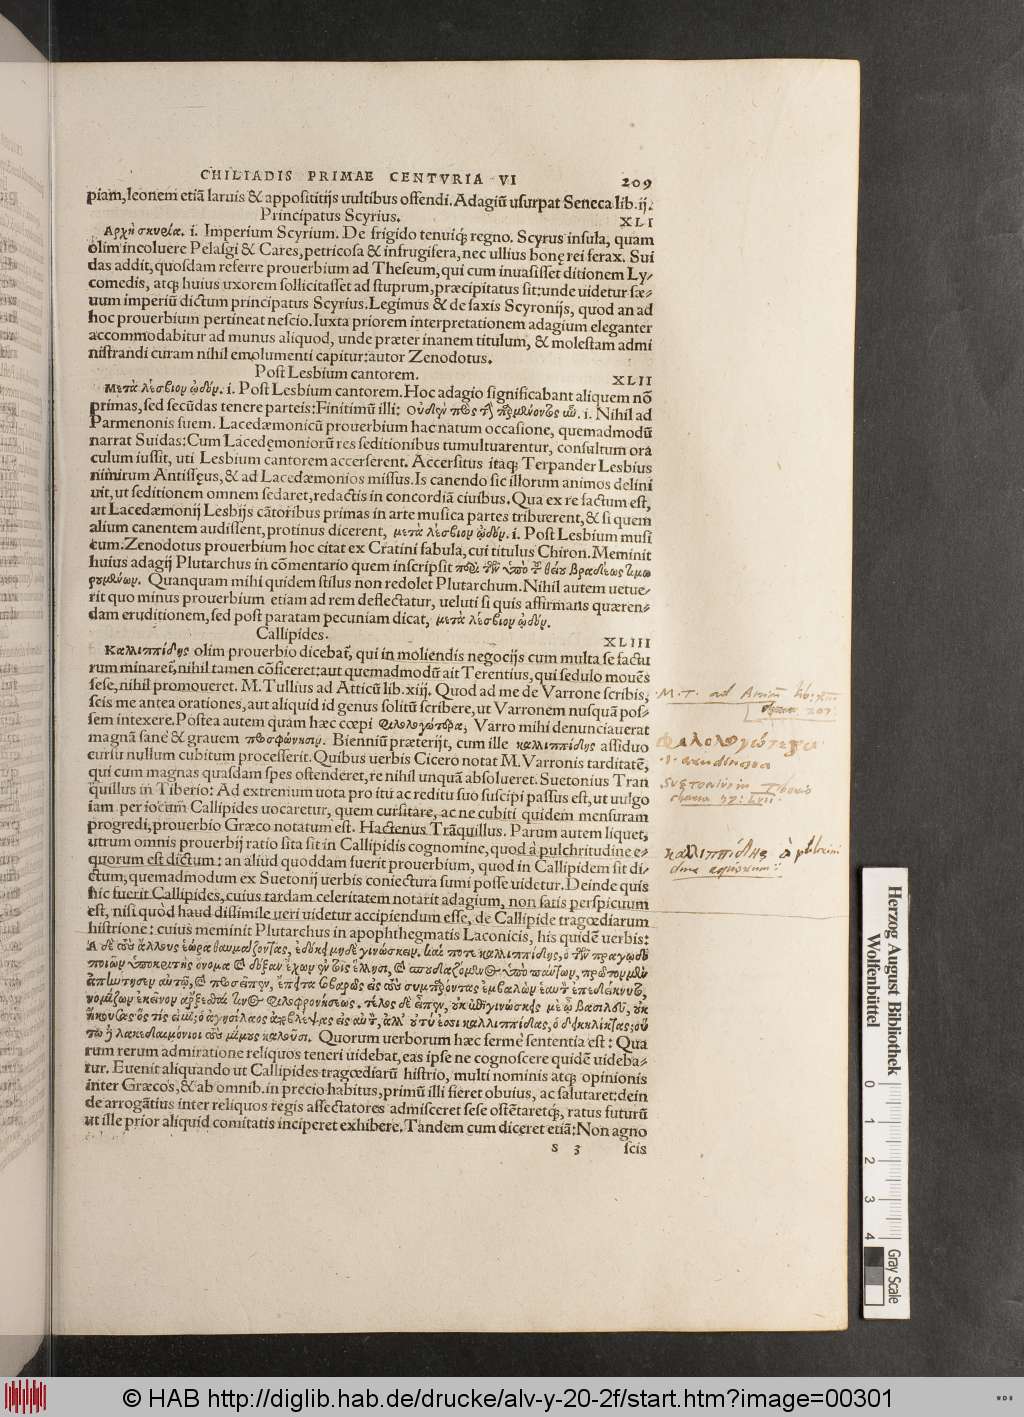 CHILIADIS PRIMAE CENTVRIA VI 209
piam, leonem etiã laruis & apposititijs uultibus offendi. Adagiũ usurpat Seneca lib. ij.
Principatus Scyrius. XLI
Ἀρχὴ σκυρία. i. Imperium Scyrium. De frigido tenuiq; regno. Scyrus insula, quam
olim incoluere Pelasgi & Cares, petricosa & infrugifera, nec ullius bonę rei ferax. Sui
das addit, quosdam referre prouerbium ad Theseum, qui cum inuasisset ditionem Ly-
comedis, atq; huius uxorem sollicitasset ad stuprum, præcipitatus sit: unde uidetur sæ-
uum imperiũ dictum principatus Scyrius. Legimus & de saxis Scyronijs, quod an ad
hoc prouerbium pertineat nescio. Iuxta priorem interpretationem adagium eleganter
accommodabitur ad munus aliquod, unde præter inanem titulum, & molestam admi
nistrandi curam nihil emolumenti capitur: autor Zenodotus.
Post Lesbium cantorem. XLII
Μετὰ λέσβιον ᾠδόν. i. Post Lesbium cantorem. Hoc adagio significabant aliquem nõ
primas, sed secũdas tenere parteis: Finitimũ illi: i. Nihil ad
Parmenonis suem. Lacedæmonicũ prouerbium hac natum occasione, quemadmodũ
narrat Suidas: Cum Lacedęmoniorũ res seditionibus tumultuarentur, consultum ora
culum iussit, uti Lesbium cantorem accerserent. Accersitus itaq; Terpander Lesbius
nimirum Antissęus, & ad Lacedæmonios missus. Is canendo sic illorum animos delini
uit, ut seditionem omnem sedaret, redactis in concordiã ciuibus. Qua ex re factum est,
ut Lacedæmonij Lesbijs cãtoribus primas in arte musica partes tribuerent, & si quem
alium canentem audissent, protinus dicerent, μετὰ λέσβιον ᾠδόν. i. Post Lesbium musi
cum. Zenodotus prouerbium hoc citat ex Cratini fabula, cui titulus Chiron. Meminit
huius adagij Plutarchus in cõmentario quem inscripsit περὶ τῶν ὑπὸ τοῦ θείου βραδέως τιμω
ρουμένων. Quanquam mihi quidem stilus non redolet Plutarchum. Nihil autem uetue-
rit quo minus prouerbium etiam ad rem deflectatur, ueluti si quis affirmans quæren-
dam eruditionem, sed post paratam pecuniam dicat, μετὰ λέσβιον ᾠδόν.
Callipides. XLIII
Καλλιππίδης olim prouerbio dicebat̃, qui in moliendis negocijs cum multa se factu
rum minaret̃, nihil tamen cõficeret: aut quemadmodũ ait Terentius, qui sedulo mouẽs
sese, nihil promoueret. M. Tullius ad Atticũ lib. xiij. Quod ad me de Varrone scribis,
scis me antea orationes, aut aliquid id genus solitũ scribere, ut Varronem nusquã pos-
sem intexere. Postea autem quam hæc cœpi φιλολογώτερα, Varro mihi denunciauerat
magnã sane & grauem προσφώνησιν. Bienniũ præterijt, cum ille καλλιππίδης assiduo
cursu nullum cubitum processerit. Quibus uerbis Cicero notat M. Varronis tarditatẽ,
qui cum magnas quasdam spes ostenderet, re nihil unquã absolueret. Suetonius Tran
quillus in Tiberio: Ad extremum uota pro itu ac reditu suo suscipi passus est, ut uulgo
iam per iocum Callipides uocaretur, quem cursitare, ac ne cubiti quidem mensuram
progredi, prouerbio Græco notatum est. Hactenus Trãquillus. Parum autem liquet,
utrum omnis prouerbij ratio sita sit in Callipidis cognomine, quod à pulchritudine e-
quorum est dictum: an aliud quoddam fuerit prouerbium, quod in Callipidem sit di-
ctum, quemadmodum ex Suetonij uerbis coniectura sumi posse uidetur. Deinde quis
hic fuerit Callipides, cuius tardam celeritatem notarit adagium, non satis perspicuum
est, nisi quòd haud dissimile ueri uidetur accipiendum esse, de Callipide tragœdiarum
histrione: cuius meminit Plutarchus in apophthegmatis Laconicis, his quidẽ uerbis:
Quorum uerborum hæc ferme sententia est: Qua
rum rerum admiratione reliquos teneri uidebat, eas ipse ne cognoscere quidẽ uideba-
tur. Euenit aliquando ut Callipides tragœdiarũ histrio, multi nominis atq; opinionis
inter Græcos, & ab omnib. in precio habitus, primũ illi fieret obuius, ac salutaret: dein
de arrogãtius inter reliquos regis assectatores admisceret sese ostẽtaretq;, ratus futurũ
ut ille prior aliquid comitatis inciperet exhibere. Tandem cum diceret etiã: Non agno
S 3 scis
M. T. ad
φιλολογώτερα
Suetonius in Tiberio
καλλιππίδης à pulchri
dine equorum:
Herzog August Bibliothek
Wolfenbüttel
0 1 2 3 4
Gray Scale
© HAB http://diglib.hab.de/drucke/alv-y-20-2f/start.htm?image=00301